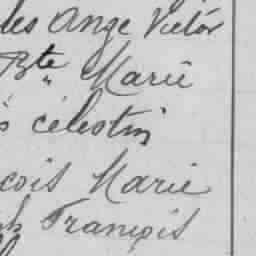 les Ange Victor
Bte " Marie
s célestin
cois Marie
ph François